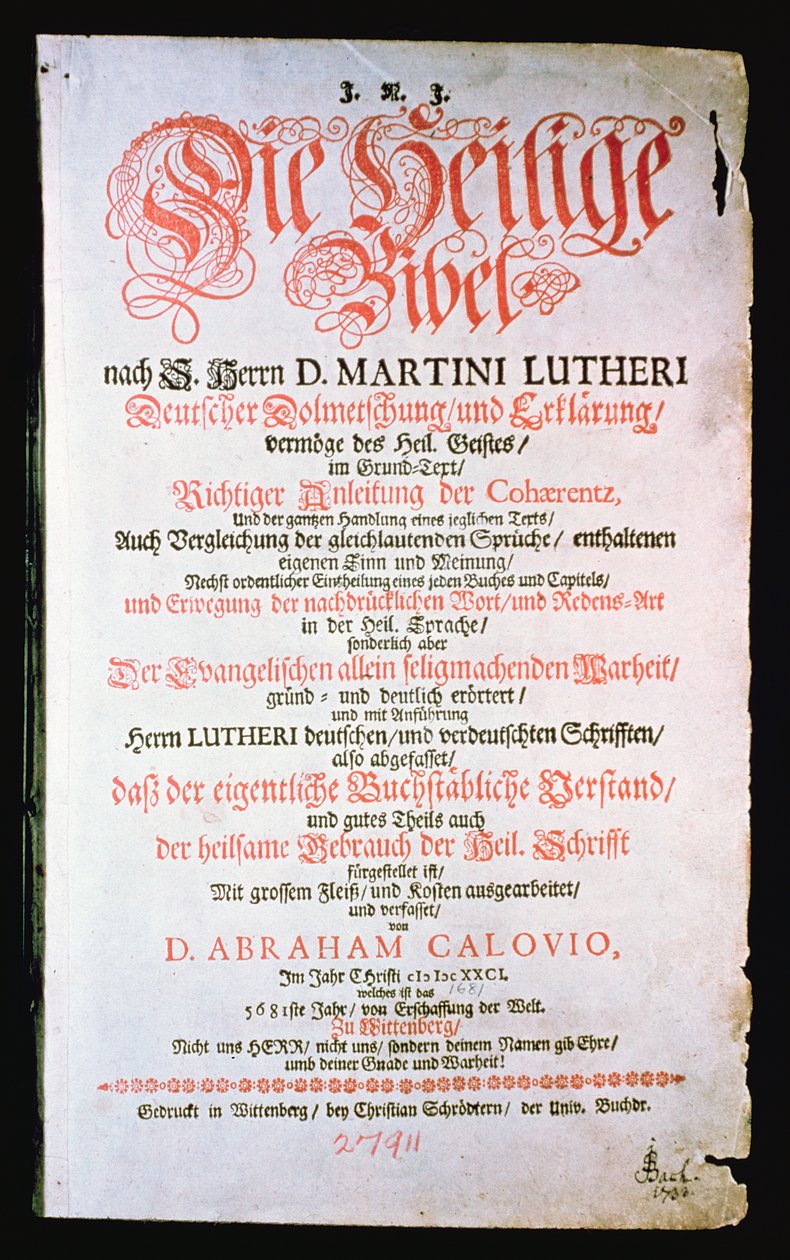 J. N. J.
Die Heilige
Bibel
nach S. Herrn D. MARTINI LUTHERI
Deutscher Dolmetschung/und Erklärung/
vermöge des Heil. Geistes/
im Grund-Text/
Richtiger Anleitung der Cohærentz,
Und der gantzen Handlung eines jeglichen Texts/
Auch Vergleichung der gleichlautenden Sprüche/ enthaltenen
eigenen Sinn und Meinung/
Nechst ordentlicher Eintheilung eines jeden Buches und Capitels/
und Erwegung der nachdrücklichen Wort/und Redens-Art
in der Heil. Sprache/
sonderlich aber
Der Evangelischen allein seligmachenden Warheit/
gründ- und deutlich erörtert/
und mit Anführung
Herrn LUTHERI deutschen/und verdeutschten Schrifften/
also abgefasset/
daß der eigentliche Buchstäbliche Verstand/
und gutes Theils auch
der heilsame Gebrauch der Heil. Schrifft
fürgestellet ist/
Mit grossem Fleiß/und Kosten ausgearbeitet/
und verfasset/
von
D. ABRAHAM CALOVIO,
Im Jahr CHristi cIↄ Iↄc XXCI.
welches ist das 1681
5681ste Jahr/ von Erschaffung der Welt.
Zu Wittenberg/
Nicht uns HERR/ nicht uns/ sondern deinem Namen gib Ehre/
umb deiner Gnade und Warheit!
Gedruckt in Wittenberg/ bey Christian Schrödtern/ der Univ. Buchdr.
27911
JSBach.
1733